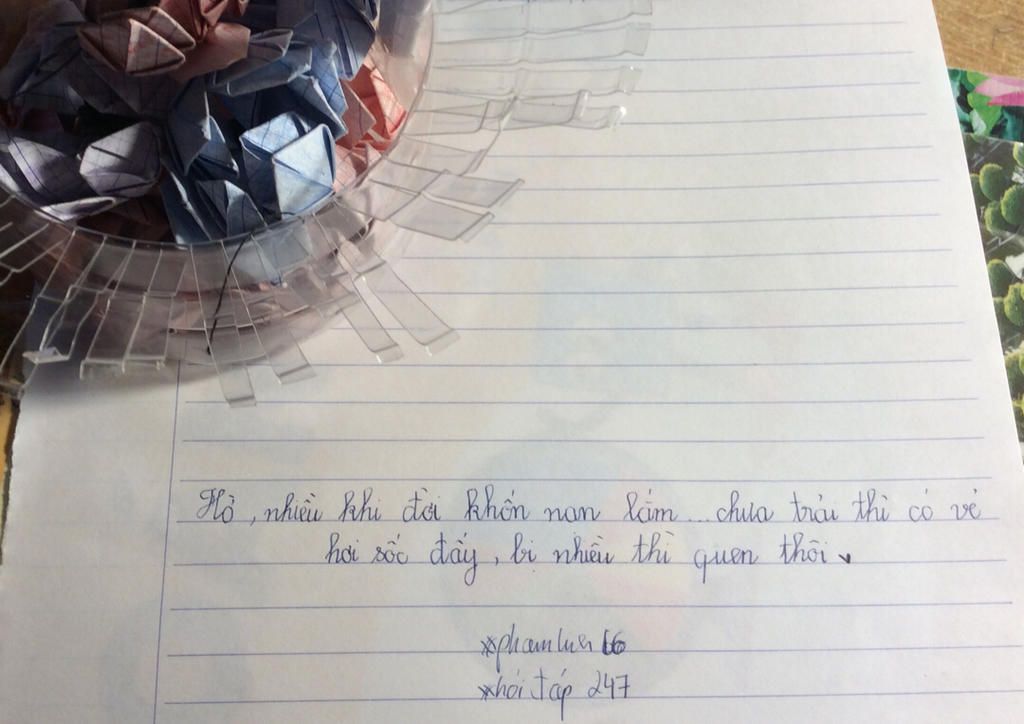 Hờ, nhiều khi đời khốn nạn lắm...chưa trải thì có vẻ
hơi sốc đấy, bị nhiều thì quen thôi
hỏi đáp 247